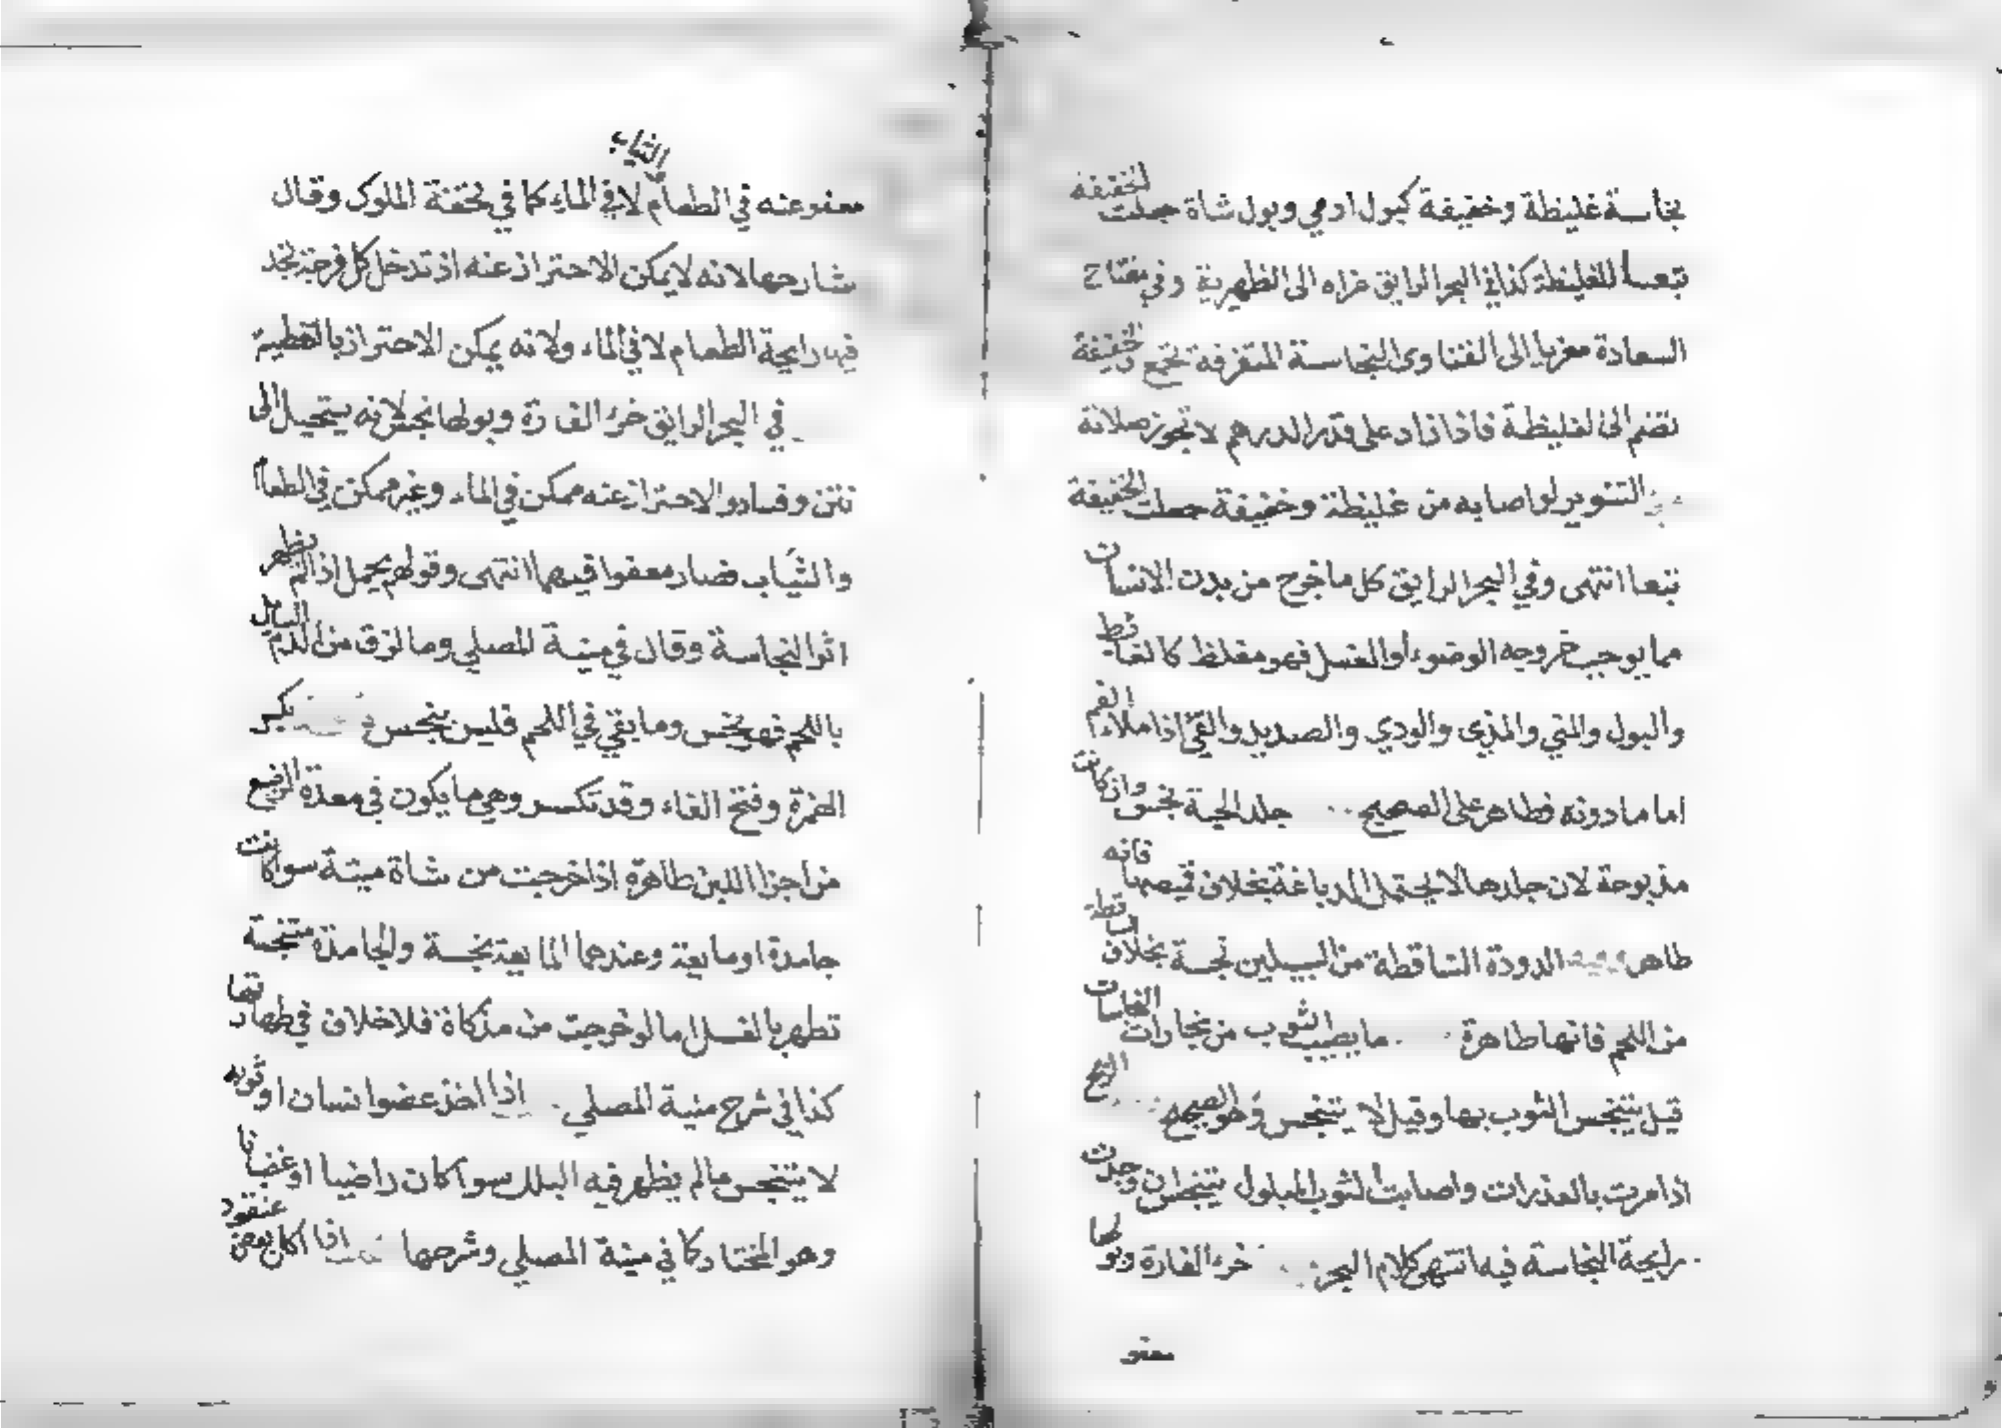 نجاسة غليظة وخفيفة كبول ادمي وبول شاة جعلت الخفيفة
تبعا للغليظة كذا في البحر الرايق عزاه الى الظهيرية وفي مفتاح
السعادة معزيا الى الفتاوى النجاسة المتفرقة تجمع والخفيفة
تضم الى الغليظة فاذا زاد على قدر الدرهم لا تجوز صلاته
التنوير لو اصابه من غليظة وخفيفة جعلت الخفيفة
تبعا انتهى وفي البحر الرايق كل ما خرج من بدن الانسان
مما يوجب خروجه الوضوء أو الغسل فهو مغلظ كالغايط
والبول والمني والمذي والودي والصديد والقئ اذا ملاء الفم
اما ما دونه فطاهر على الصحيح جلد الحية نجس وان كانت
مذبوحة لان جلدها لا يحتمل الدباغة بخلاف قميصها فانه
طاهر الدودة الساقطة من السبيلين نجسة بخلاف الساقطة
من اللحم فانها طاهرة ما يصيب الثوب من بخارات النجاسات
قيل يتنجس الثوب بها وقيل لا يتنجس وهو الصحيح الريح
اذا مرت بالعذرات واصابت الثوب المبلول يتنجس ان وجدت
رايحة النجاسة فيه انتهى كلام البحر خرء الفارة وبولها
معفو
معفو عنه في الطعام والثياب لا في الماء كما في تحفة الملوك وقال
شارحها لانه لا يمكن الاحتراز عنه اذ تدخل كل فرجة تجد
فيها رايحة الطعام لا في الماء ولانه يمكن الاحتراز بالتغطية
في البحر الرايق خرء الفارة وبولها نجس لانه يستحيل الى
نتن وفساد والاحتراز عنه ممكن في الماء وغير ممكن في الطعام
والثياب فصار معفوا فيهما انتهى وقولهم يحمل اذا لم يظهر
اثر النجاسة وقال في منية المصلي وما لزق من الدم السايل
باللحم فهو نجس وما بقي في اللحم فليس بنجس بكسر
الهمزة وفتح الفاء وقد تكسر وهي ما يكون في معدة الرضيع
من اجزا اللبن طاهرة اذا خرجت من شاة ميتة سوا كانت
جامدة او مايعة وعندهما المايعة نجسة والجامدة متنجسة
تطهر بالغسل اما لو خرجت من مذكاة فلا خلاف في طهارتها
كذا في شرح منية المصلي اذا اخذ عضوا نسان او ثوبه
لا يتنجس مالم يظهر فيه البلل سوا كان راضيا او غضبانا
وهو المختار كما في منية المصلي وشرحها اذا اكل بعض عنقود